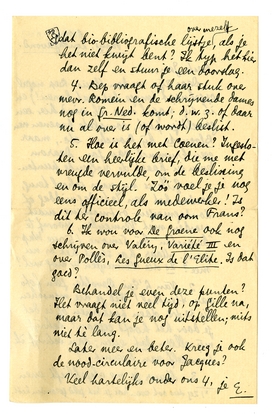 over merelf
dat bio-bibliografische lijstje, als je
het niet kwijt bent? Ik typ het hier
dan zelf en stuur je een doorslag.
4. Dep vraagt of haar stuk over
mevr. Romein en de schrijvende dames
nog in Gr. Ned. komt; d.w.z. of daar
nu al over is (of wordt) beslist.
5. Hoe is het met Coenen? Ingesloten
een heerlijke brief, die me met
vreugde vervulde, om de beslissing
en om de stijl. Zoo voel je je nog
eens officieel, als medewerker! Is
dit ter contrôle van oom Frans?
6. Ik wou voor De Groene ook nog
schrijven over Valéry, Variété III en
over Pollès, Les Gueux de l'Elite. Is dat
goed?
Behandel je even deze punten?
Het vraagt niet veel tijd, op Gille na,
maar dat kan je nog uitstellen; mits
niet te lang.
Later meer en beter. Kreeg je ook
de nood-circulaire voor Jacques?
Veel hartelijks onder ons 4, je E.